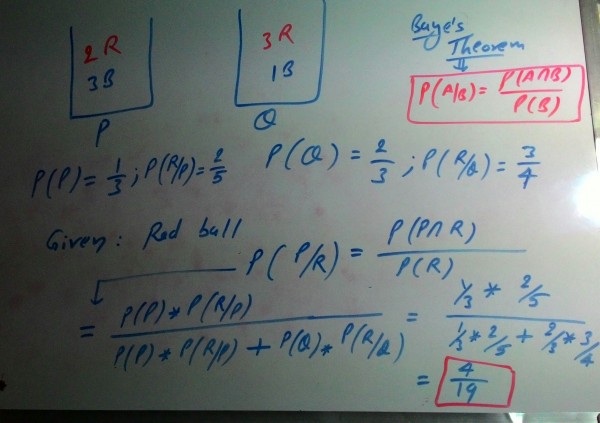 2R
3B
P
3R
1B
Q
Baye's
Theorem
P(A/B) = P(A∩B) / P(B)
P(P) = 1/3 ; P(R/P) = 2/5
P(Q) = 2/3 ; P(R/Q) = 3/4
Given: Red ball
P(P/R) = P(P∩R) / P(R)
= P(P) * P(R/P) / P(P) * P(R/P) + P(Q) * P(R/Q) = 1/3 * 2/5 / 1/3 * 2/5 + 2/3 * 3/4
= 4/19